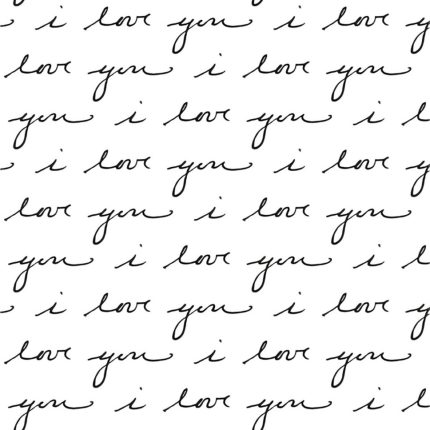 i love you i love y
love you i love you
you i love you i l
i love you i love y
love you i love you
you i love you i l
i love you i love y
love you i love you
you i love you i l